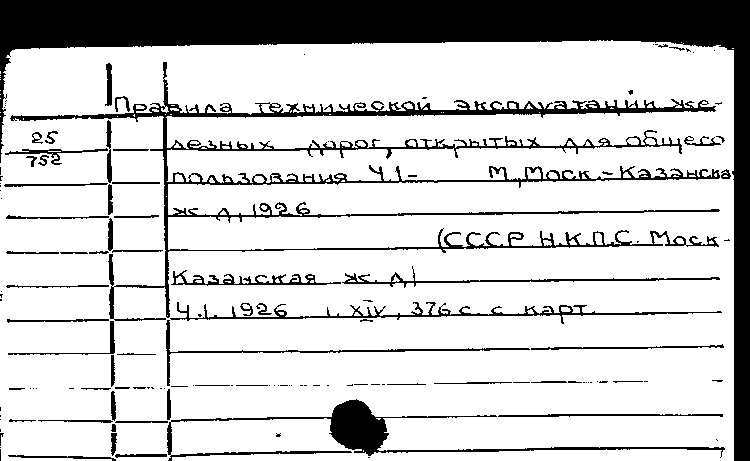 Правила технической эксплуатации же-
25
752
лезных дорог, открытых для общего
пользования Ч.I- М., Моск.-Казанска
ж. д., 1926.
(СССР Н.К.П.С. Моск-
Казанская ж. д)
Ч.I. 1926 1. XIV, 376 с. с карт.